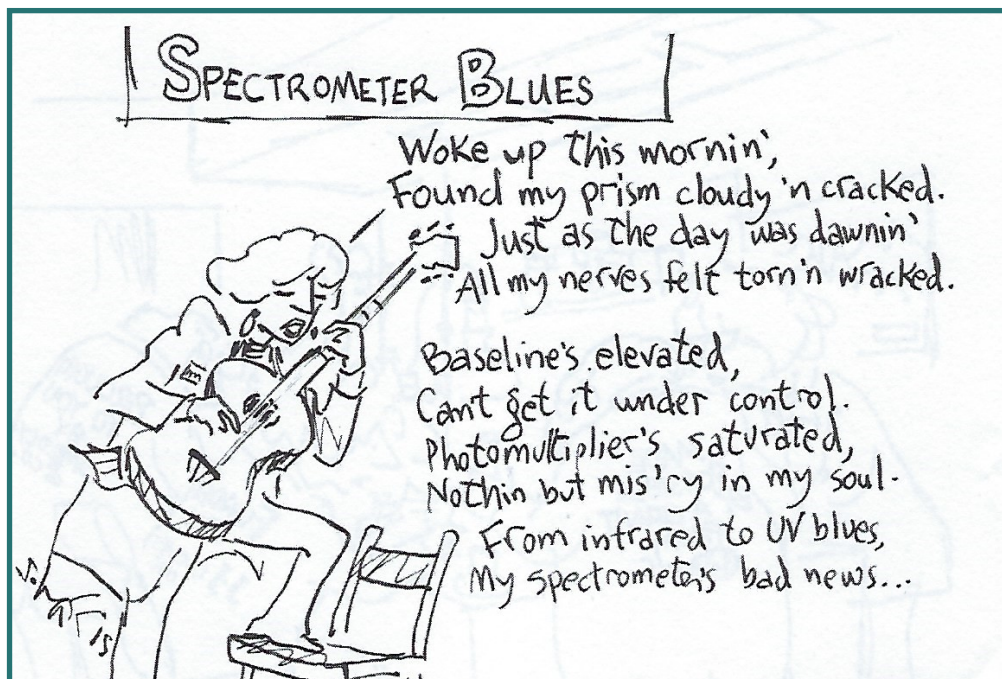 SPECTROMETER BLUES
Woke up this mornin',
Found my prism cloudy 'n cracked.
Just as the day was dawnin'
All my nerves felt torn 'n wracked.
Baseline's elevated,
Can't get it under control.
Photomultiplier's saturated,
Nothin but mis'ry in my soul.
From infrared to UV blues,
My spectrometer's bad news...